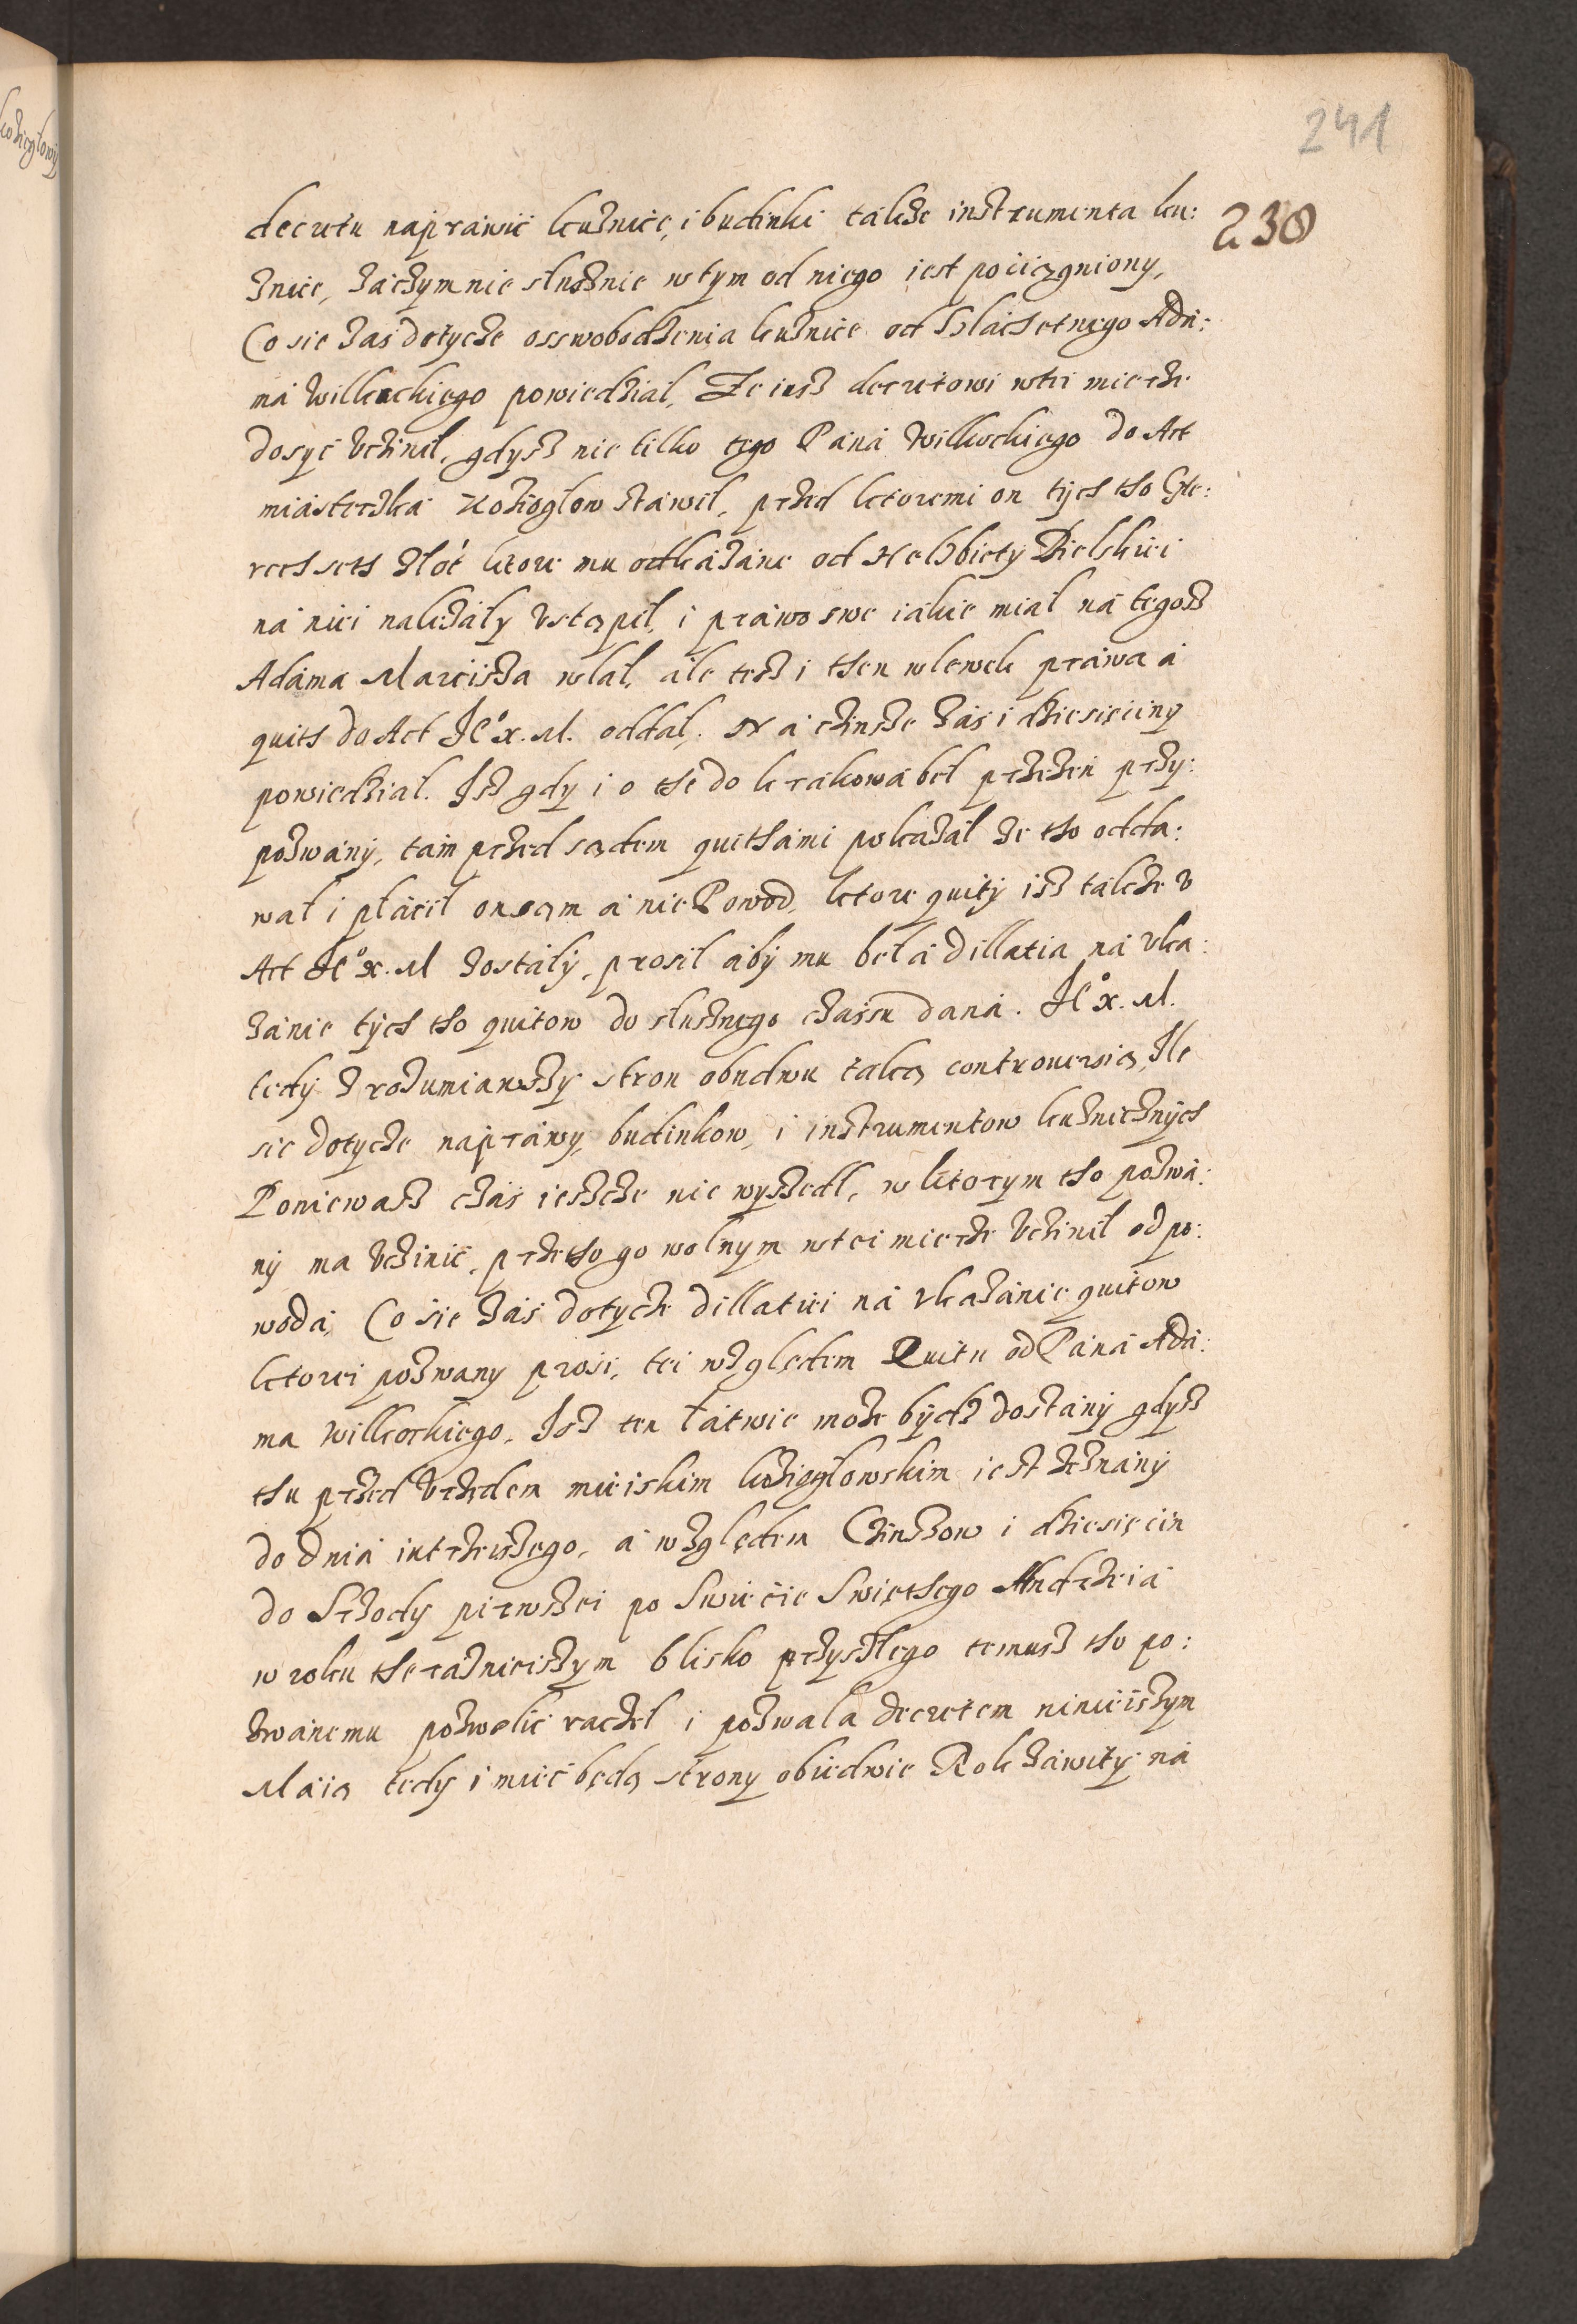 241
238
decretu naprawić kuźnice, i budinki także instrumenta ku:
źnice, záczym nie słusznie w tym od niego iest pociągniony,
Co sie zaś dotycze osswobodzenia kuźnice od Szlachetnego Adá:
má Wilkockiego powiedział, Ze iusz decretowi w tei mierze
dosyć vczinił, gdysz nie tilko tego Páná Wilkockiego do Act
miásteczka Koziogłow stáwił, przed ktoremi on tych tho
złot ktore mu odkázáne od Helzbiety
ná niei należáły vstąpił, i práwo swe iákie miał ná tegosz
Adáma Marcisza wlał, ále tesz i then wlewek práwa á
quith do Act Je° X. M. oddał. Ná czinsze záś i dziesięciny
powiedział. Isz gdy i o the do Krákowá beł przezeń przy:
pozwány, tám przed sądem quithámi pokazáł że tho odda:
wał i płácił on sąm á nie Powod, ktore quity isz tákze v
Act Je° X. M zostáły, prosił áby mu belá dillatia ná vka:
zánie tych tho quitow do słusznego czássu daná. Je° X. M.
tedy zrozumiawszy stron obudwu taką controuersią, Ile
sie dotycze nápráwy, budinkow, i instrumentow kuźnicznych
Poniewasz czás ieszcze nie wyszedł, w ktorym tho pozwá:
ny ma vczinić, przetho go wolnym w tei mierze vczinił od po:
wodá, Co sie záś dotycze dillatiei ná vkazánie quitow
ktorei pozwany prosi, tei względem Quitu od Páná Adá:
ma Wilkockiego, Isz ten łátwie może bydz dostány gdysz
thu przed vrzędem mieiskim koziegłowskim iest zeznány
do dniá iutrzeiszego, á względem Czinszow i dziesięcin
do Srzody pierwszei po Swięcie Swiethego Andrzeiá
w roku theraznieiszym blisko przyszłego temusz tho po:
zwánemu pozwolić raczeł i pozwala decretem ninieiszym
Máią tedy i mieć będą strony obiedwie Rok záwity ná